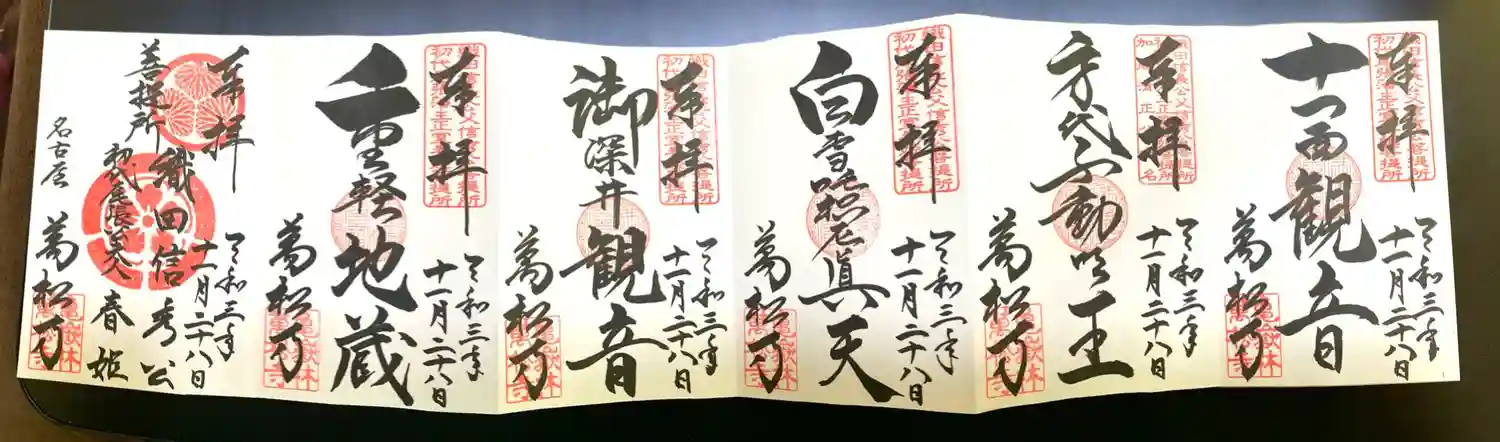 奉拝
十一面観音
令和三年
十一月二十八日
萬松寺
奉拝
身代不動明王
令和三年
十一月二十八日
萬松寺
奉拝
白雪吒枳尼真天
令和三年
十一月二十八日
萬松寺
奉拝
御深井観音
令和三年
十一月二十八日
萬松寺
奉拝
重軽地蔵
令和三年
十一月二十八日
萬松寺
奉拝
令和三年
十一月二十八日
織田信秀公
菩提所
初代尾張義夫人
春姫
名古屋
萬松寺